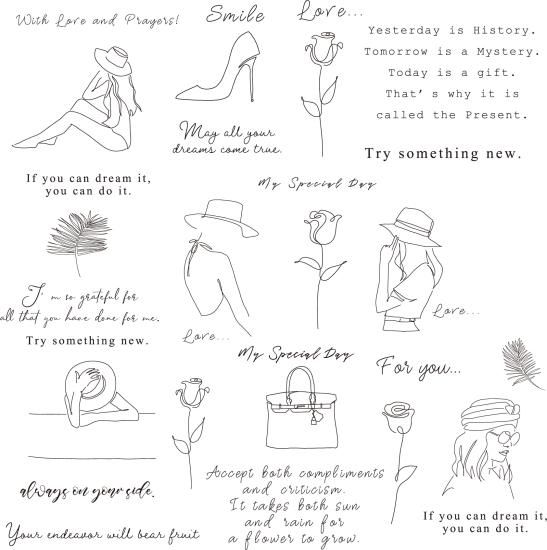 With Love and Prayers!
Smile
Love...
Yesterday is History.
Tomorrow is a Mystery.
Today is a gift.
That's why it is
called the Present.
May all your
dreams come true.
Try something new.
If you can dream it,
you can do it.
My Special Day
I'm so grateful for
all that you have done for me.
Love...
Love...
Try something new.
My Special Day
For you...
always on your side.
Accept both compliments
and criticism.
It takes both sun
and rain for
a flower to grow.
If you can dream it,
you can do it.
Your endeavor will bear fruit